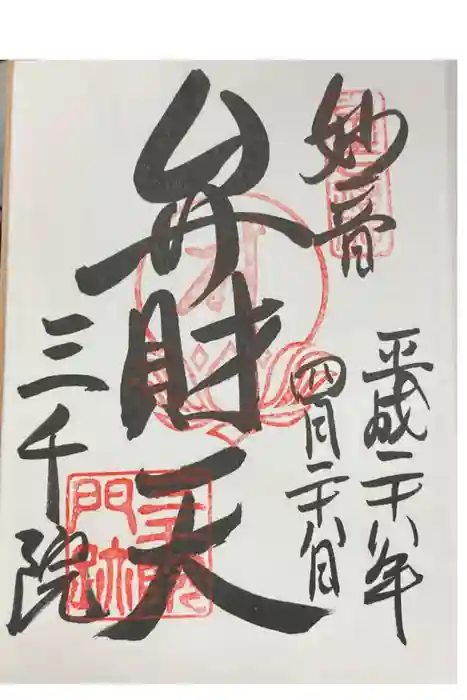 妙音
平成二十八年
四月二十八日
弁財天
三千院
三千院
門跡